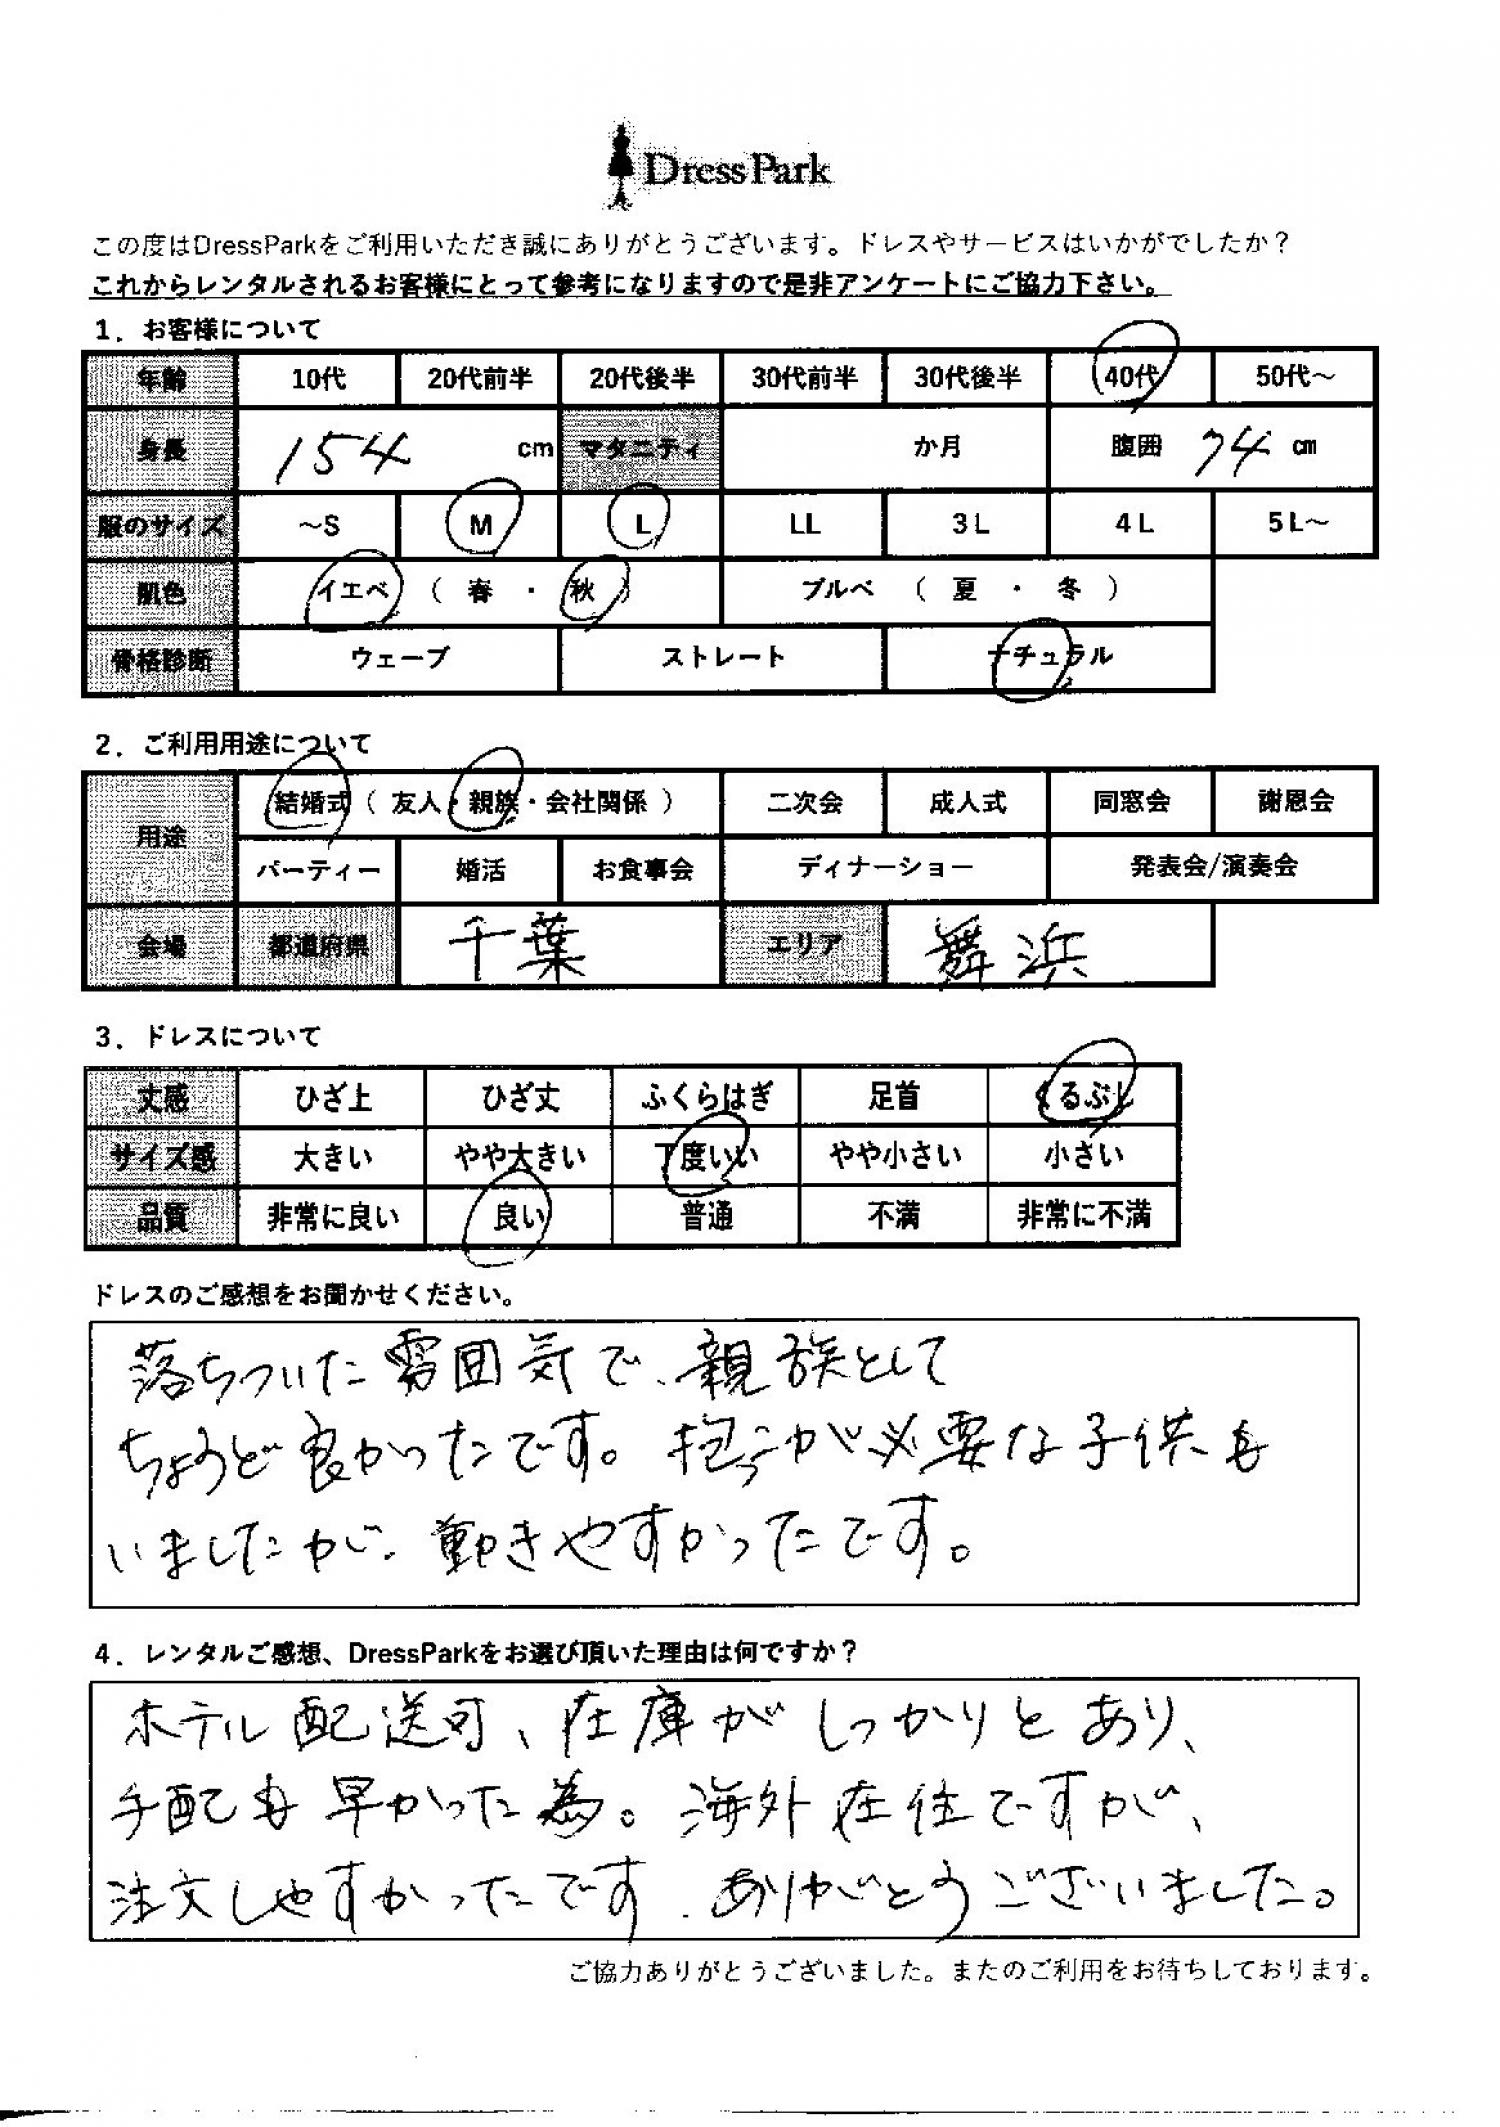 DressPark
この度はDressParkをご利用いただき誠にありがとうございます。ドレスやサービスはいかがでしたか？
これからレンタルされるお客様にとって参考になりますので是非アンケートにご協力下さい。
1．お客様について
年齢 10代 20代前半 20代後半 30代前半 30代後半 40代 50代～
身長 154 cm マタニティ か月 腹囲 74 cm
服のサイズ ～S M L LL 3L 4L 5L～
肌色 イエベ （ 春 ・ 秋 ） ブルベ （ 夏 ・ 冬 ）
骨格診断 ウェーブ ストレート ナチュラル
2．ご利用用途について
用途 結婚式（ 友人・親族・会社関係 ） 二次会 成人式 同窓会 謝恩会
パーティー 婚活 お食事会 ディナーショー 発表会/演奏会
会場 都道府県 千葉 エリア 舞浜
3．ドレスについて
丈感 ひざ上 ひざ丈 ふくらはぎ 足首 くるぶし
サイズ感 大きい やや大きい 丁度いい やや小さい 小さい
品質 非常に良い 良い 普通 不満 非常に不満
ドレスのご感想をお聞かせください。
落ちついた雰囲気で、親族として
ちょうど良かったです。抱っこが必要な子供も
いましたが、動きやすかったです。
4．レンタルご感想、DressParkをお選び頂いた理由は何ですか？
ホテル配送可、在庫がしっかりとあり、
手配も早かった為。海外在住ですが、
注文しやすかったです。ありがとうございました。
ご協力ありがとうございました。またのご利用をお待ちしております。